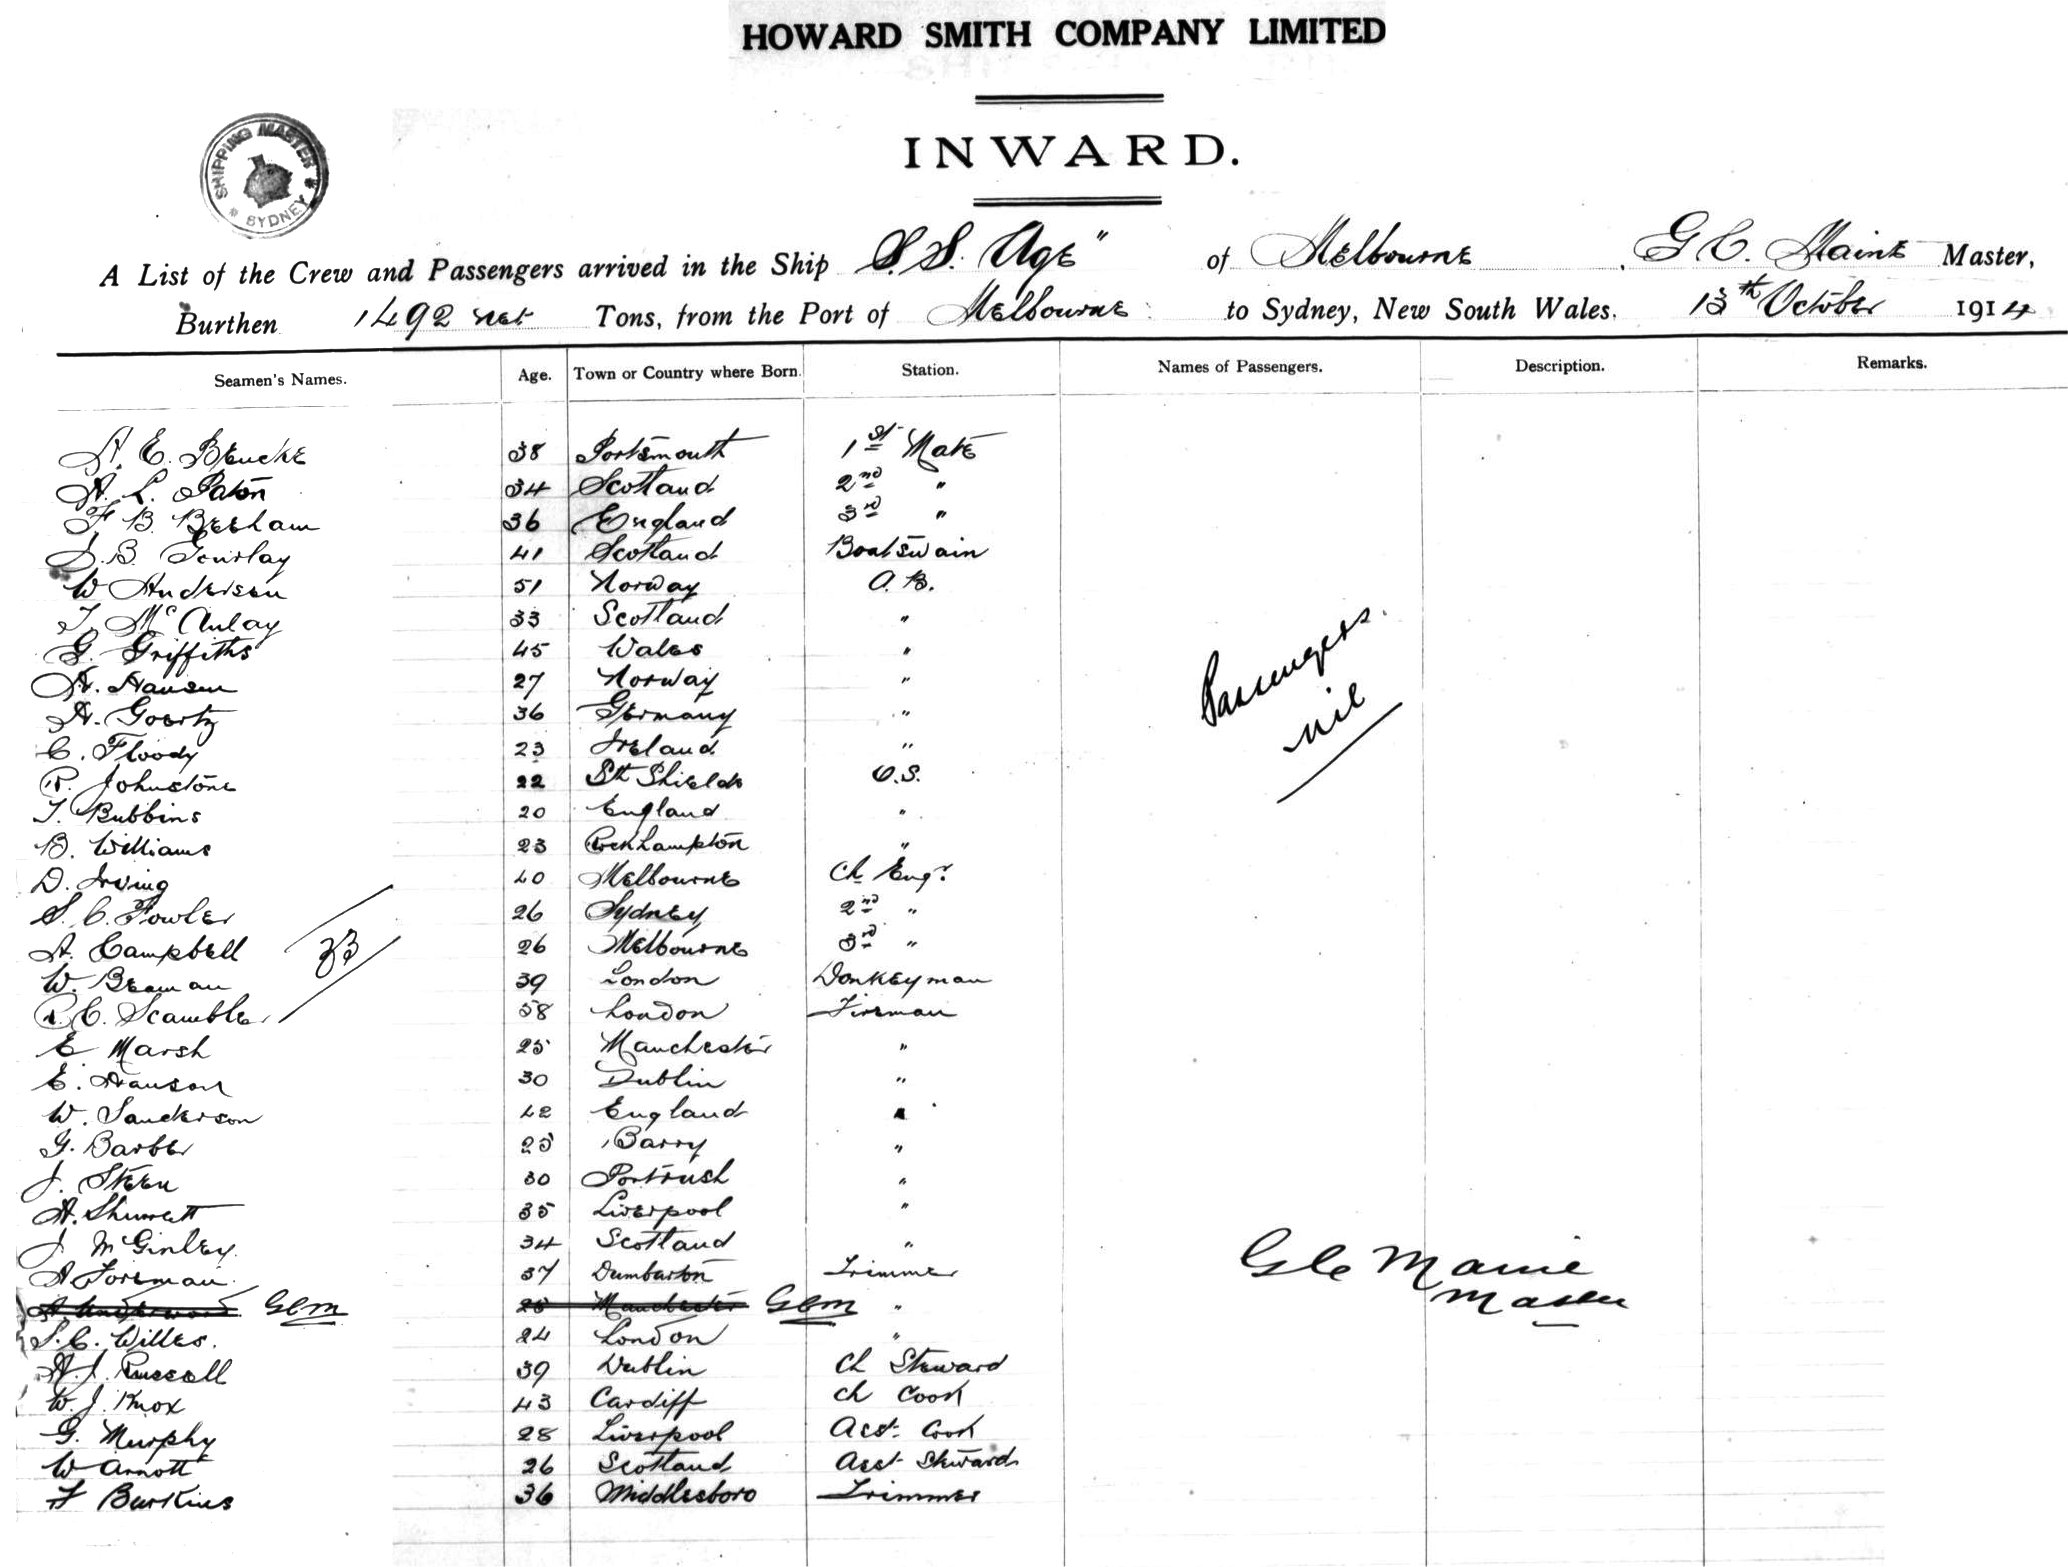 HOWARD SMITH COMPANY LIMITED
INWARD.
SHIPPING MASTER
SYDNEY
A List of the Crew and Passengers arrived in the Ship S.S. Age" of Melbourne, G C. Maine Master,
Burthen 1492 net Tons, from the Port of Melbourne to Sydney, New South Wales. 13th October 1914
Seamen's Names. Age. Town or Country where Born. Station. Names of Passengers. Description. Remarks.
A. E. 38 Portsmouth 1st Mate
A. L. Paton 34 Scotland 2nd "
F B 36 England 3rd "
J. B. Gourlay 41 Scotland Boatswain
W Andersen 51 Norway A. B.
J. McAulay 33 Scotland "
G. Griffiths 45 Wales "
H. Hansen 27 Norway "
A. Goertz 36 Germany "
C. Floody 23 Ireland "
R. Johnstone 22 Sth Shields O.S.
T. Bubbins 20 England "
B. Williams 23 Rockhampton "
D. Irving 40 Melbourne Ch Engr
S. C. Fowler 26 Sydney 2nd "
A. Campbell 26 Melbourne 3rd "
W. Beaman 39 London Donkeyman
33
R. C. Scambler 58 London Fireman
E Marsh 25 Manchester "
E. Hanson 30 Dublin "
W. Sanderson 42 England "
G. Barber 25 Barry "
J. Steen 30 Portrush "
A. 35 Liverpool "
J McGinley. 34 Scotland "
A Foreman 37 Dumbarton Trimmer
A Underwood GCM 25 Manchester GCM "
S. C. Willes. 24 London "
A. J. Russell 39 Dublin Ch Steward
W. J. Knox 43 Cardiff Ch Cook
G. Murphy 28 Liverpool Asst. Cook
W Arnott 26 Scotland Asst Steward
F Burkins 36 Middlesboro Trimmer
Passengers.
nil
G C Maine
Master